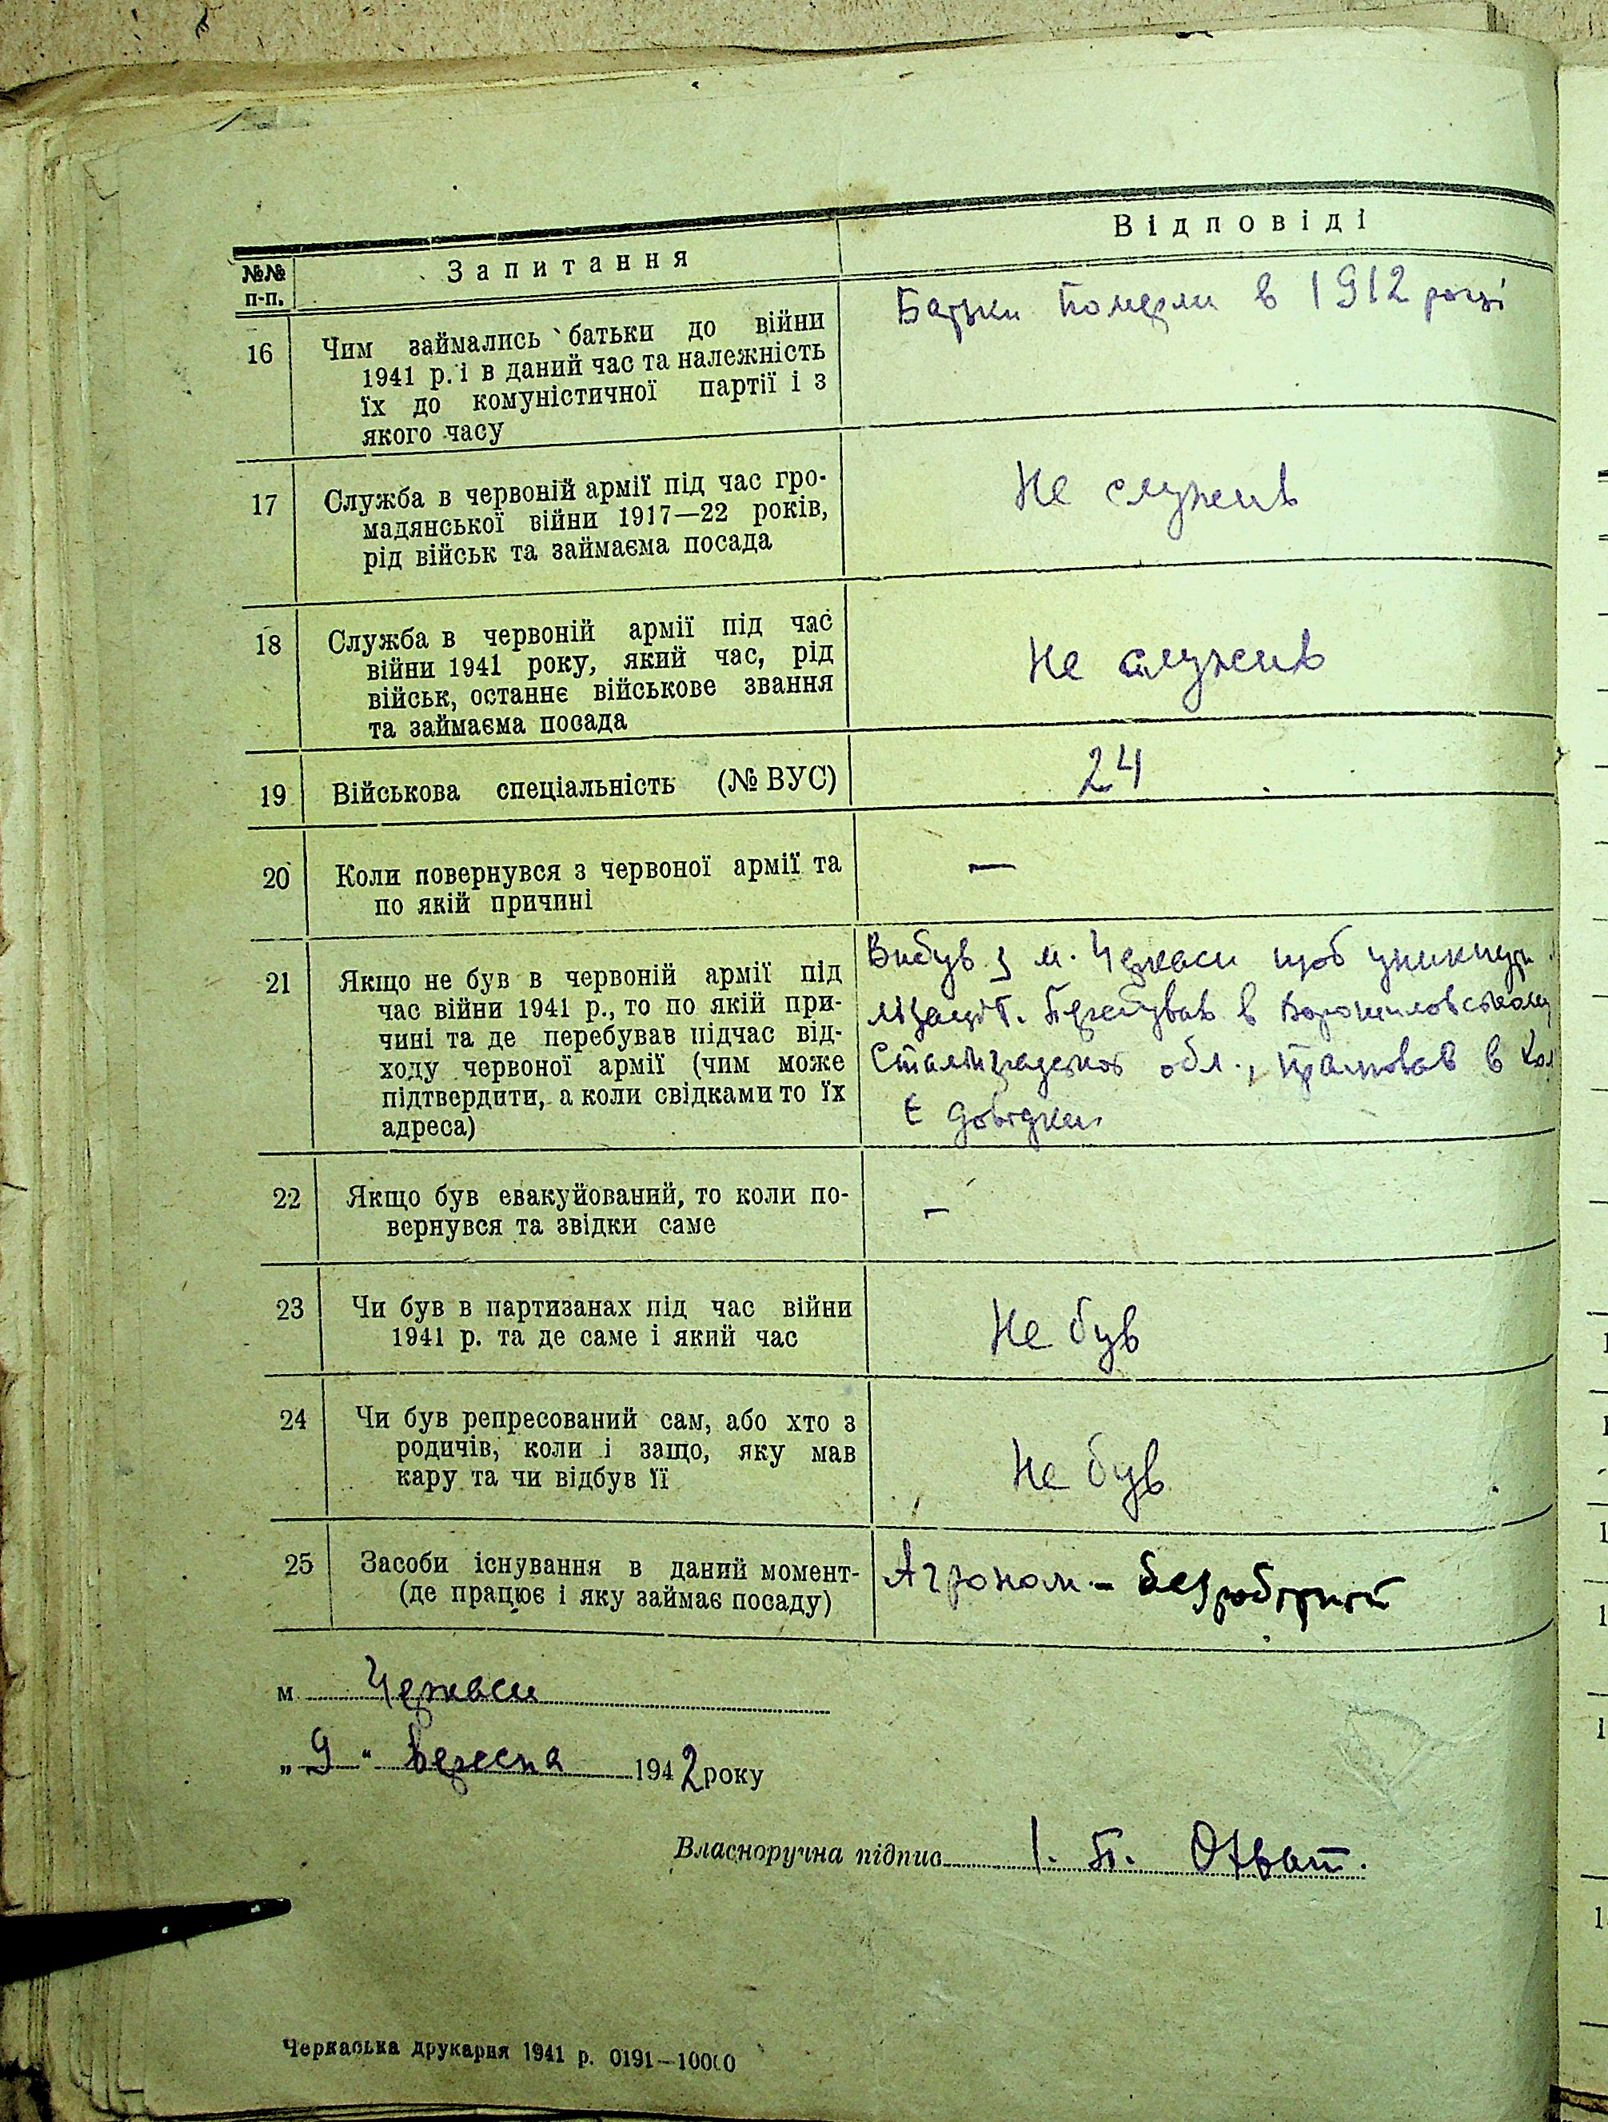 №№ п-п.
Запитання
Відповіді
16
Чим займались батьки до війни
1941 р. і в даний час та належність
їх до комуністичної партії і з
якого часу
Батьки померли в 1912 році
17
Служба в червоній армії під час гро-
мадянської війни 1917—22 років,
рід військ та займаєма посада
Не служив
18
Служба в червоній армії під час
війни 1941 року, який час, рід
військ, останнє військове звання
та займаєма посада
Не служив
19
Військова спеціальність (№ ВУС)
24
20
Коли повернувся з червоної армії та
по якій причині
—
21
Якщо не був в червоній армії під
час війни 1941 р., то по якій при-
чині та де перебував підчас від-
ходу червоної армії (чим може
підтвердити, а коли свідками то їх
адреса)
Вибув з м. Черкаси щоб уникнути
лізації. Перебував в Ворошиловському
Сталінградської обл., працював в кол
Є довідки.
22
Якщо був евакуйований, то коли по-
вернувся та звідки саме
–
23
Чи був в партизанах під час війни
1941 р. та де саме і який час
Не був
24
Чи був репресований сам, або хто з
родичів, коли і защо, яку мав
кару та чи відбув її
Не був
25
Засоби існування в даний момент-
(де працює і яку займає посаду)
Агроном – безробітний
м. Черкаси
„ 9 “ вересня 1942 року
Власноручна підпис І. П. Охват.
Черкаська друкарня 1941 р. 0191—10000